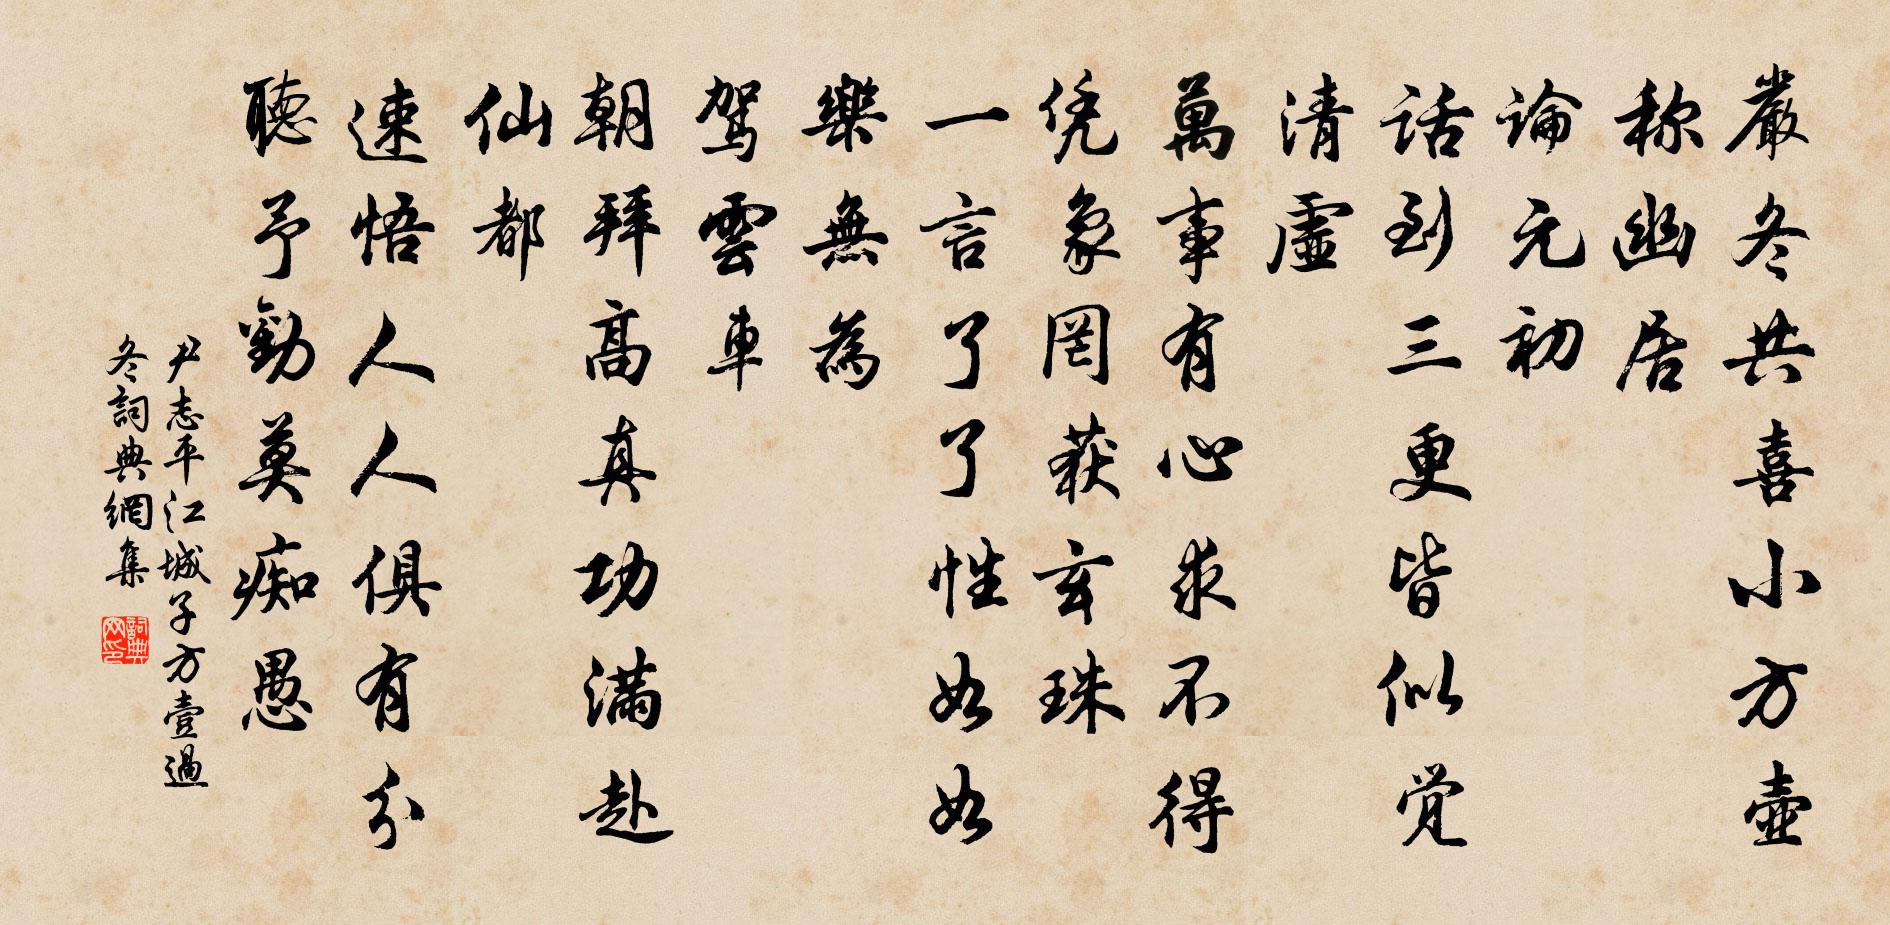 嚴冬共喜小方壺
称幽居
論元初
話到三更皆似覚
清虛
萬事有心求不得
凭象罔获玄珠
一言了了性如如
樂無為
駕雲車
朝拜高真功滿赴
仙都
速悟人人俱有分
聽予勸莫痴愚
尹志平江城子方壹過
冬詞典網集
詞典网印